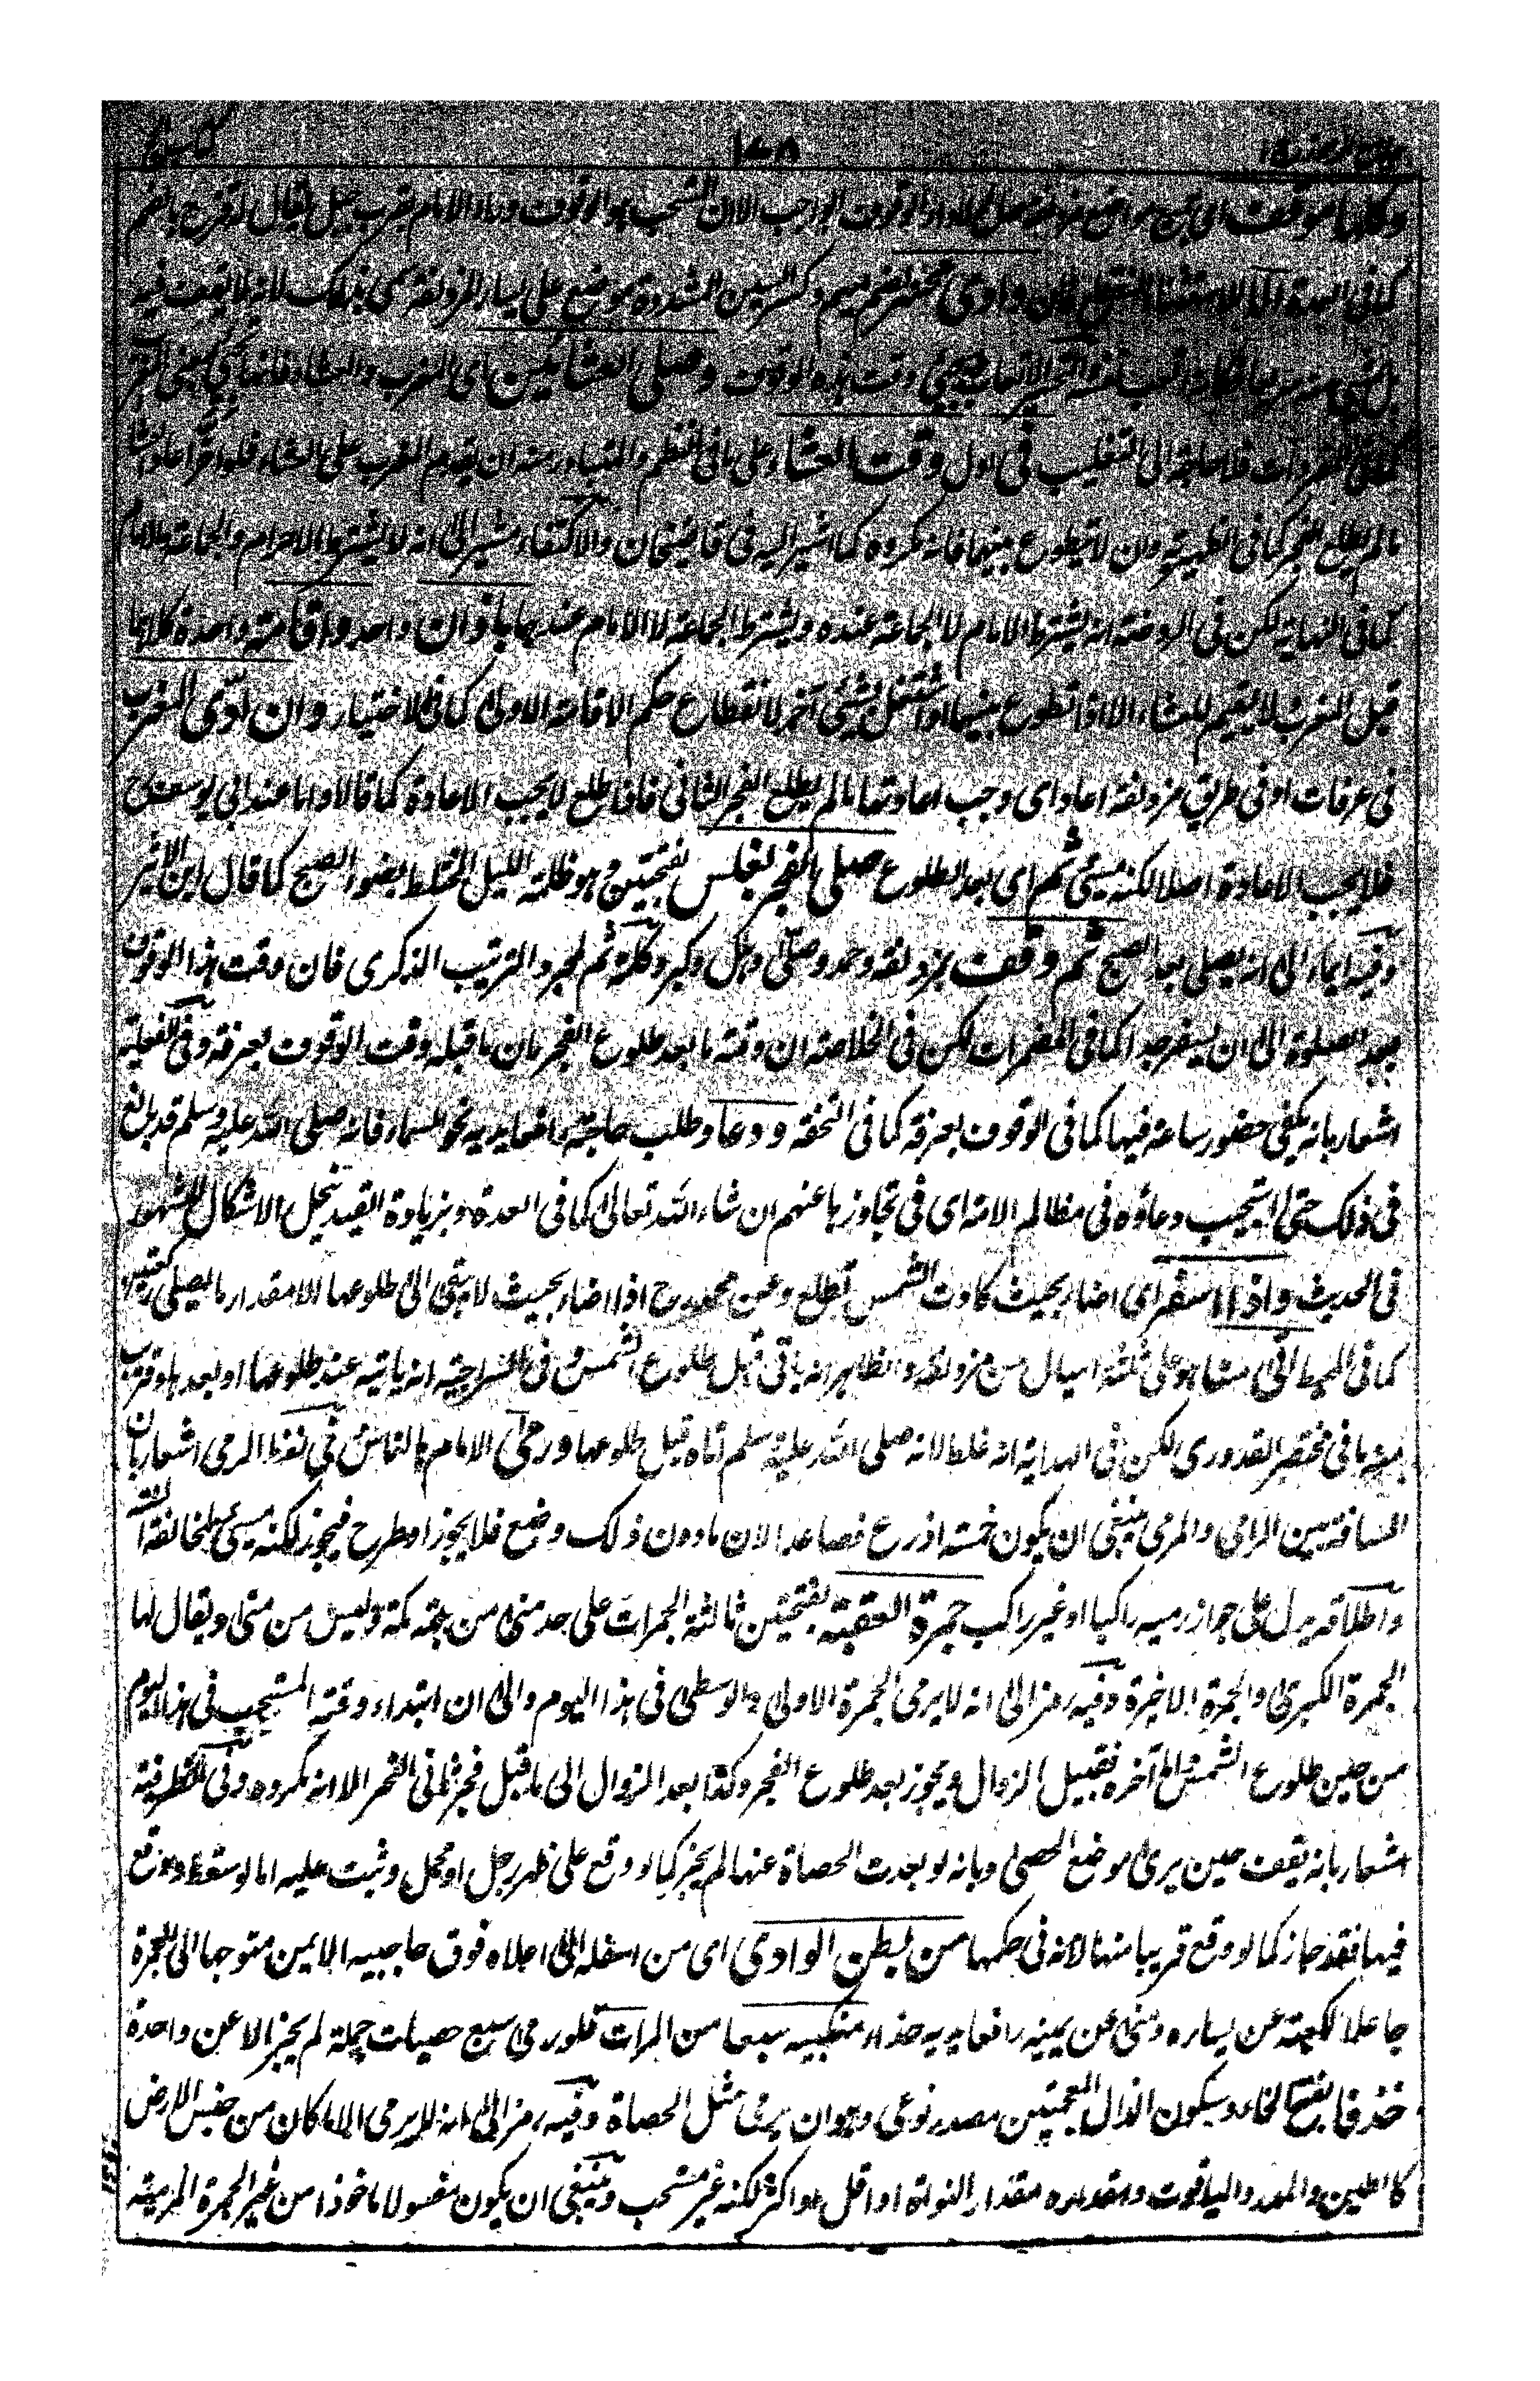 ١٧٨
وكلها موقف اى الواجب الا ان المستحب هو الوقوف وراء الامام بقرب جبل يقال له قزح بالضم
كما فى العمدة وادى محسر بضم ميم وكسر السين المشددة موضع على يسار المزدلفة سمى بذلك لانه لا يقف فيه
وقت هذه الوقوف وصلى العشائين اى المغرب والعشاء
الى التغليب فى اول وقت العشاء على ما فى النظم والمتبادر منه ان يقدم المغرب على العشاء
ما لم يطلع الفجر كما فى الظهيرية وان لا يتطوع بينهما فانه مكروه كما اشير اليه فى قاضيخان والاكتفاء مشير الى انه لا يشترط الاحرام والجماعة والامام
كما فى النهاية لكن فى الروضة انه يشترط الامام لا الجماعة عنده ويشترط الجماعة لا الامام عندهما باذان واحد واقامة واحدة كلاهما
قبل المغرب لا يقيم للعشاء الا اذا تطوع بينهما او اشتغل بشئ آخر لانقطاع حكم الاقامة الاولى كما فى الاختيار وان ادّى المغرب
فى عرفات او فى طريق مزدلفة اعاد اى وجب اعادتها ما لم يطلع الفجر الثانى فاذا طلع لا يجب الاعادة كما قالا واما عند ابى يوسف رح
فلا يجب الاعادة اصلا لكنه مسئ ثم اى بعد الطلوع صلى الفجر بغلس بفتحتين وهو ظلمة الليل المختلط بضوء الصبح كما قال ابن الاثير
وفيه ايماء الى انه يصلى بها الصبح ثم وقف بمزدلفة وحمد وصلّى وهلل وكبر وكلمة ثم لمجرد الترتيب الذكرى فان وقت هذا الوقوف
بعد الصلوة الى ان يسفر جدا كما فى المضمرات لكن فى الخلاصة ان وقته ما بعد طلوع الفجر بان ما قبله وقت الوقوف بعرفة وفى الفعلية
اشعار بانه يكفى حضور ساعة فيها كما فى الوقوف بعرفة كما فى التحفة ودعا وطلب حاجته رافعا يديه نحو السماء فانه صلى الله عليه وسلم قد بالغ
فى ذلك حتى استجيب دعاؤه فى مظالم الامة اى فى تجاوزها عنهم ان شاء الله تعالى كما فى العمدة وبزيادة القيد ينحل الاشكال المشهور
فى الحديث واذا اسفر اى اضاء بحيث كادت الشمس تطلع وعن محمد رح اذا اضاء بحيث لا يبقى الى طلوعها الا مقدار ما يصلى ركعتين
كما فى المحيط اتى منى هو على ثلثة اميال من مزدلفة والظاهر انه ياتى قبل طلوع الشمس وفى السراجية انه ياتيه عند طلوعها او بعدها وقريب
منه ما فى مختصر القدورى لكن فى الهداية انه غلط لانه صلى الله عليه وسلم اتاه قبل طلوعها ورمى الامام بالناس وفى لفظ الرمى اشعار بان
المسافة بين الرامى والمرمى ينبغى ان يكون خمسة اذرع فصاعدا لان ما دون ذلك وضع فلا يجوز او طرح فيجوز لكنه مسئ لمخالفة السنة
واطلاقه يدل على جواز رميه راكبا او غير راكب جمرة العقبة بفتحتين ثالثة الجمرات على حد منى من جهة مكة وليس من منى ويقال لها
الجمرة الكبرى والجمرة الاخيرة وفيه رمز الى انه لا يرمى الجمرة الاولى والوسطى فى هذا اليوم والى ان ابتداء وقته المستحب فى هذا اليوم
من حين طلوع الشمس واما آخره فقبيل الزوال ويجوز بعد طلوع الفجر وكذا بعد الزوال الى ما قبل فجر ثانى النحر الا انه مكروه وفى الظرفية
اشعار بانه يقف حين يرى موضع الحصى وبانه لو بعدت الحصاة عنها لم يجز كما لو وقع على ظهر رجل او محمل وثبت عليه اما لو سقط ووقع
فيها فقد جاز كما لو وقع قريبا منها لانه فى حكمها من بطن الوادى اى من اسفله الى اعلاه فوق حاجبيه الايمن متوجها الى الجمرة
جاعلا الكعبة عن يساره ومنى عن يمينه رافعا يديه حذاء منكبيه سبعا من المرات فلو رمى سبع حصيات جملة لم يجز الا عن واحدة
خذفا بفتح الخاء وسكون الذال المعجمتين مصدر نوعى وهو ان يرمى مثل الحصاة وفيه رمز الى انه لا يرمى الا ما كان من جنس الارض
كالطين والمدر والياقوت ومقداره مقدار النواة او اقل او اكثر لكنه غير مستحب وينبغى ان يكون مغسولا ماخوذا من غير الجمرة المرمية